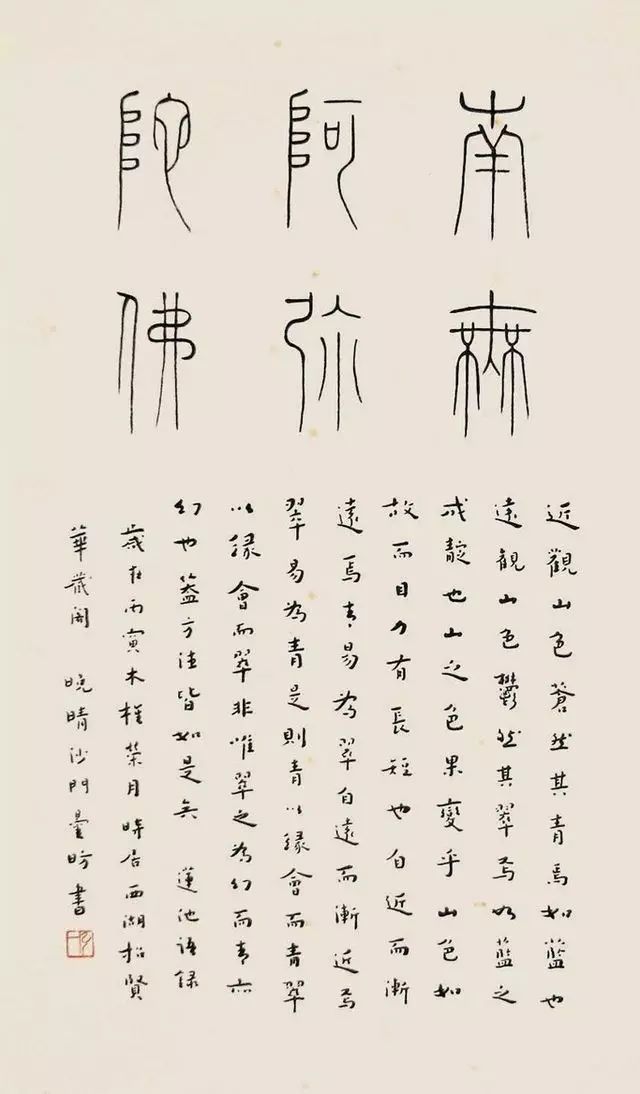 南無
阿弥
陀佛
近觀山色蒼然其青焉如藍也
遠觀山色鬱然其翠焉如藍之
成靛也山之色果變乎山色如
故而目力有長短也自近而漸
遠焉青易為翠自遠而漸近焉
翠易為青是則青以緣會而青翠
以緣會而翠非唯翠之為幻而青亦
幻也蓋万法皆如是矣 蓮池語錄
歲在丙寅木槿榮月時居西湖招賢
華嚴閣 晚晴沙門曇昉書